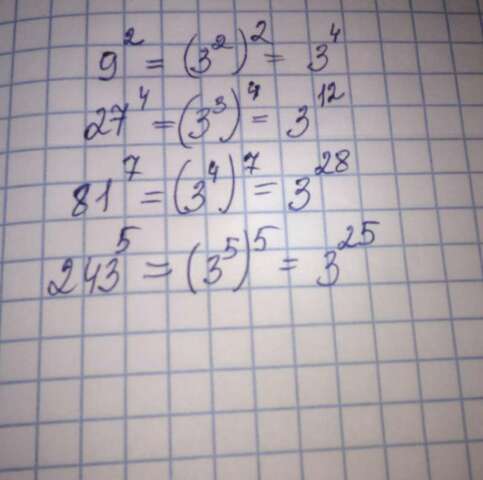 9² = (3²)² = 3⁴
27⁴ = (3³)⁴ = 3¹²
81⁷ = (3⁴)⁷ = 3²⁸
243⁵ = (3⁵)⁵ = 3²⁵